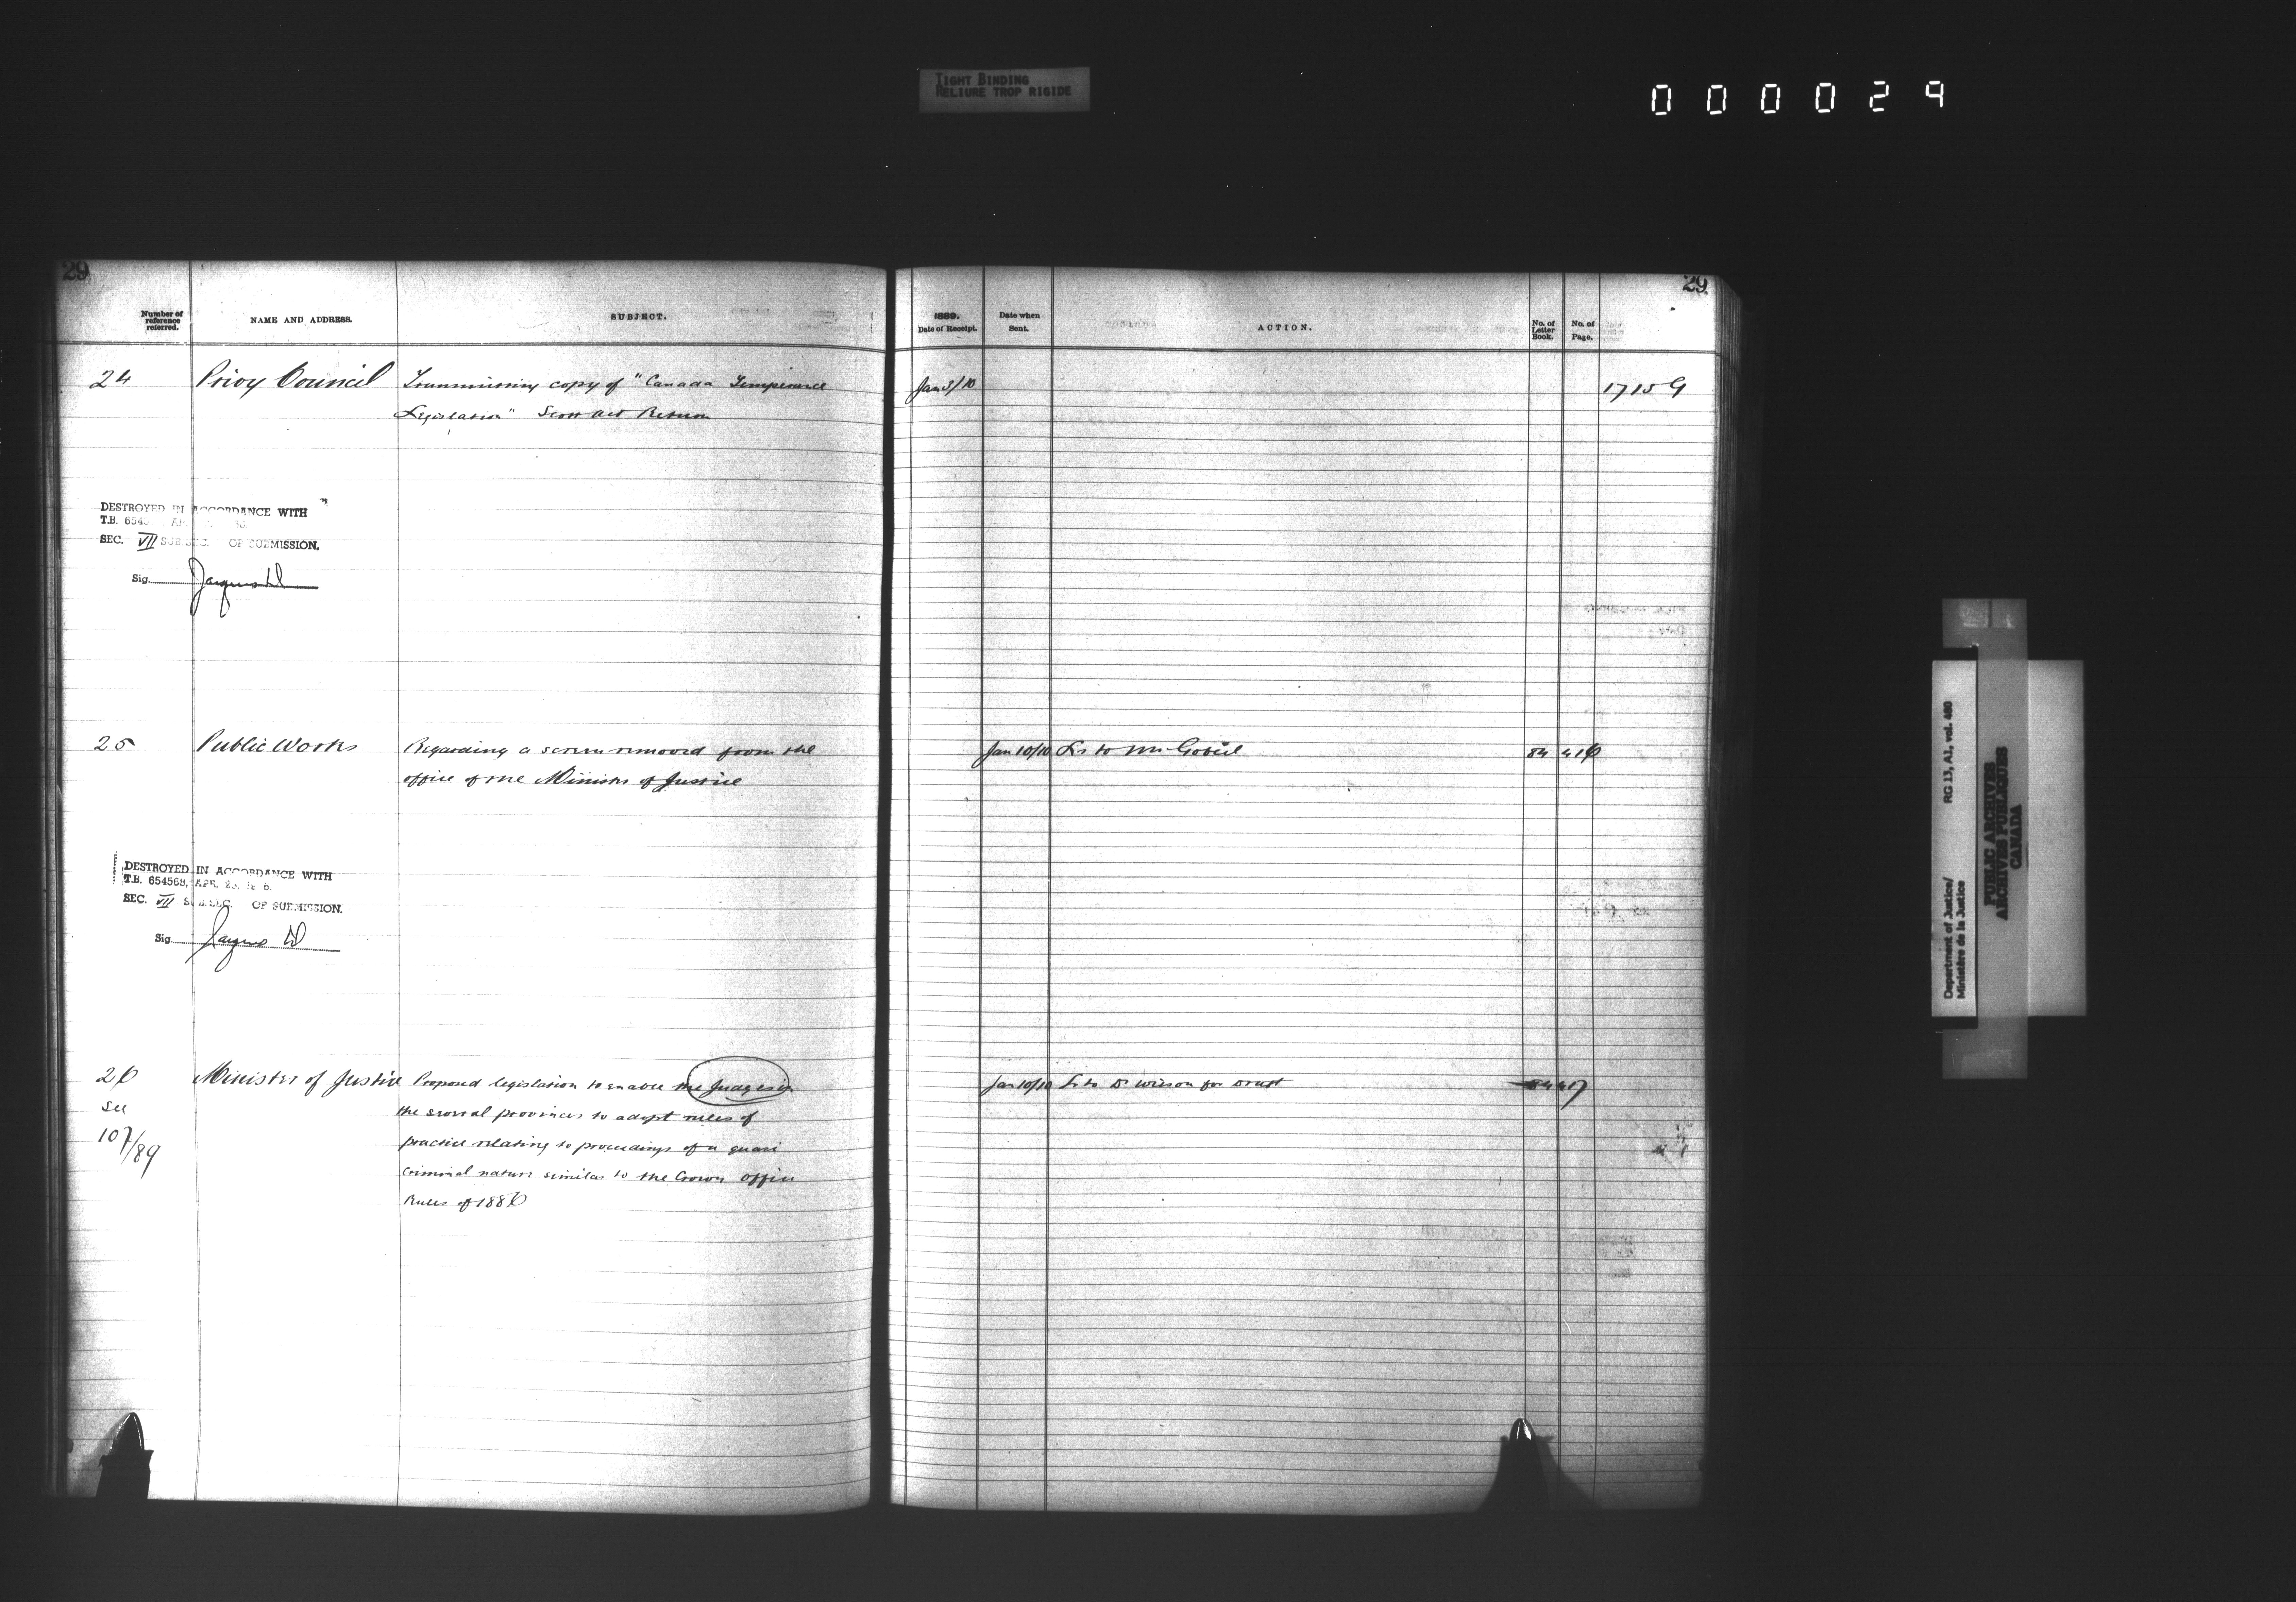 TIGHT BINDING
RELIURE TROP RIGIDE
000029
29
29
Number of reference referred.
NAME AND ADDRESS.
SUBJECT.
1889.
Date of Receipt.
Date when Sent.
ACTION.
No. of Letter Book.
No. of Page.
24 Privy Council Transmitting copy of "Canada Temperance Jan 3/10 1715 G
Legislation" Scott Act Return
DESTROYED IN ACCORDANCE WITH
T.B. 6545
SEC. VII SUB SEC. OF SUBMISSION.
Sig.
25 Public Works Regarding a screen removed from the Jan 10/10 Lr to Mr Gobeil 84 416
office of the Minister of Justice
DESTROYED IN ACCORDANCE WITH
T.B. 654568, APR. 25,
SEC. VII SUB SEC. OF SUBMISSION.
Sig.
26 Minister of Justice Proposed legislation to enable the Judges in Jan 10/10 Lr to D Wilson for Draft 84 417
see the several provinces to adopt rules of
107/89 practice relating to proceedings of a quasi
criminal nature similar to the Crown Office
Rules of 1886
Department of Justice/ RG 13, A1, vol. 460
Ministère de la Justice
PUBLIC ARCHIVES
ARCHIVES PUBLIQUES
CANADA